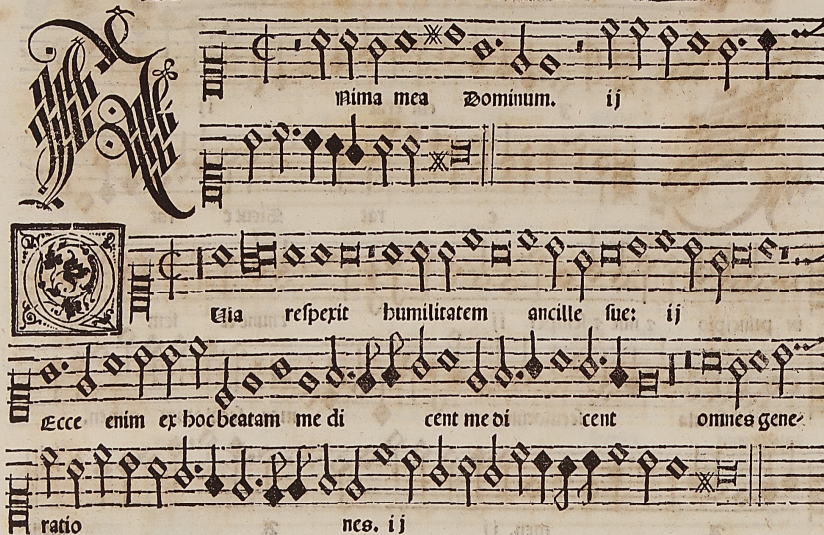 ANima mea Dominum. ij
QUia reſpexit humilitatem ancille ſue: ij
Ecce enim ex hoc beatam me di cent me di cent omnes gene-
ratio nes. ij